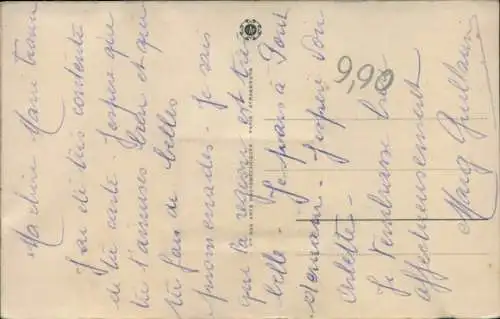 Machère Marie
J'ai été très contente
de ta carte - J'espère que
tu t'amuses bien et que
tu fais de belles
promenades - Je sais
que la région est très
belle - Je pars à Pont
demain - J'espère voir
Arlette -
Je t'embrasse bien
affectueusement
9,90